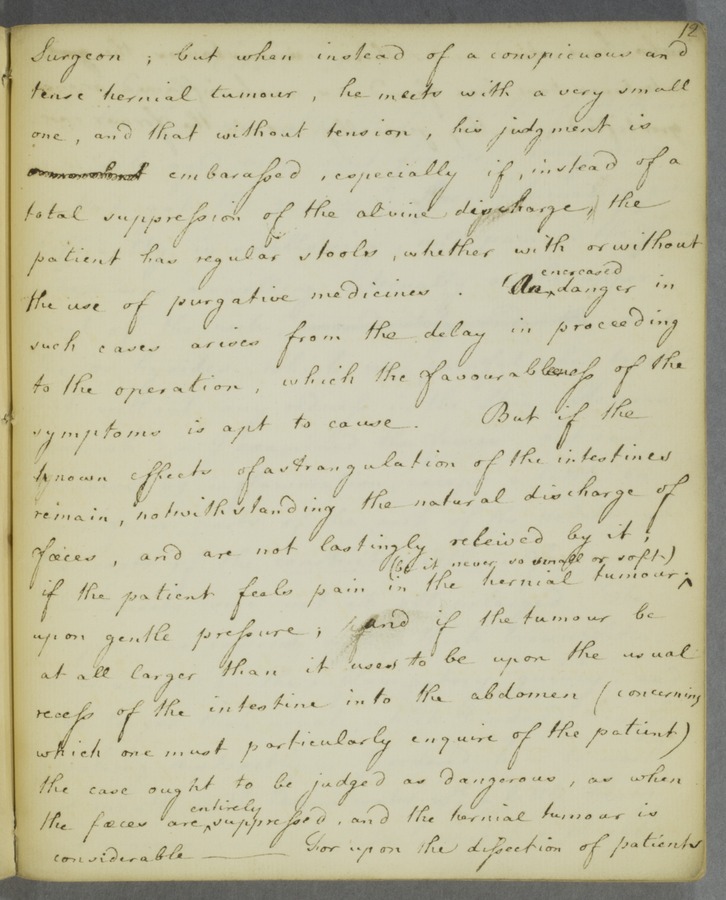 12
Surgeon ; but when instead of a conspicuous and
tense hernial tumour, he meets with a very small
one, and that without tension, his judgment is
embarassed, especially if, instead of a
total suppression of the alvine discharge, the
patient has regular stools, whether with or without
the use of purgative medicines. An encreased danger in
such cases arises from the delay in proceeding
to the operation, which the favourableness of the
symptoms is apt to cause. But if the
known effects of a strangulation of the intestines
remain, notwithstanding the natural discharge of
fæces, and are not lastingly releived by it;
if the patient feels pain in the hernial tumour, (be it never so small or soft)
upon gentle pressure; and if the tumour be
at all larger than it uses to be upon the usual
recess of the intestine into the abdomen (concerning
which one must particularly enquire of the patient)
the case ought to be judged as dangerous, as when
the fæces are entirely suppressed, and the hernial tumour is
considerable —— For upon the dissection of patients